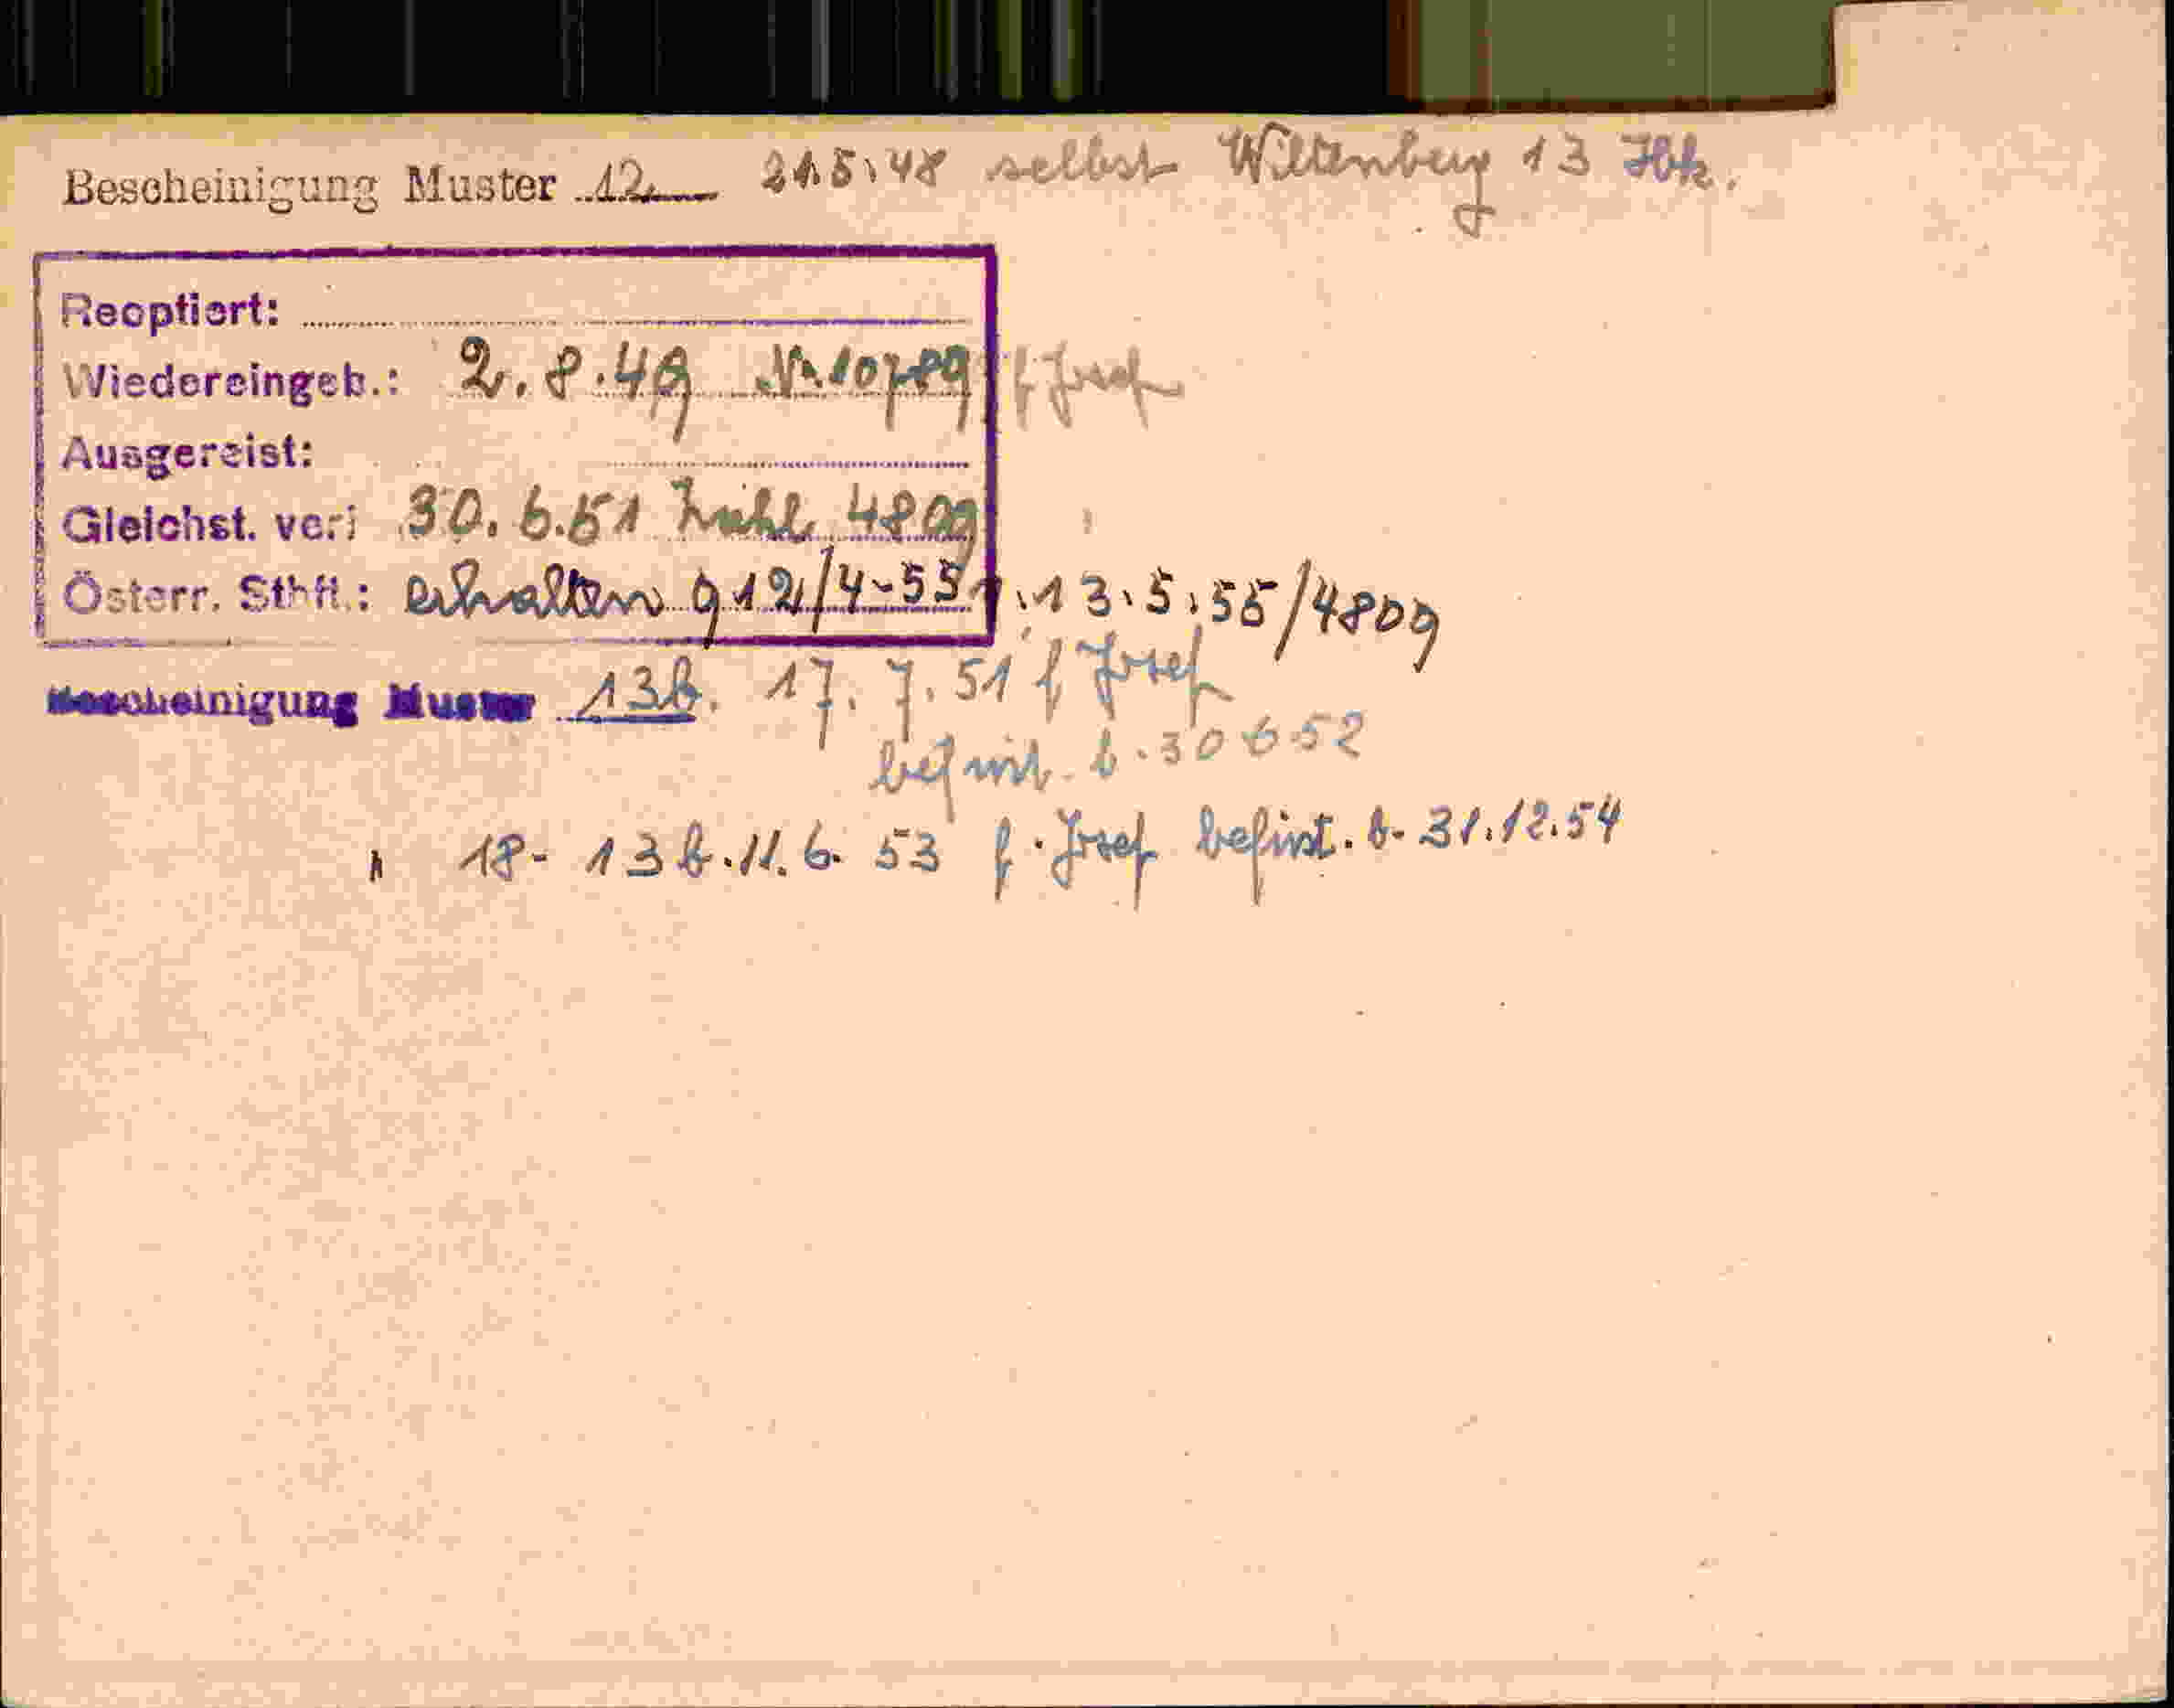 Bescheinigung Muster 12 21.5.48 selbst Wiltenberg 13 Ibk.
Reoptiert:
Wiedereingeb.: 2.8.49 Nr. 10789 f Josef
Ausgereist:
Gleichst. verl 30.6.51 4809
Österr. Stbft.: erhalten 9 12/4-55 13.5.55/4809
Bescheinigung Muster 13b. 17.7.51 f Josef
befrist. b. 30 6 52
" 18- 13b. 11.6.53 f. Josef befrist. b. 31.12.54